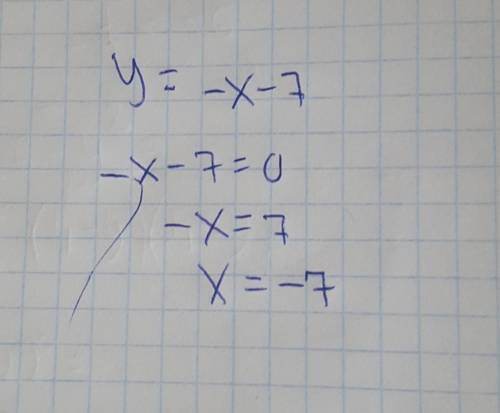 y = -x - 7
-x - 7 = 0
-x = 7
x = -7